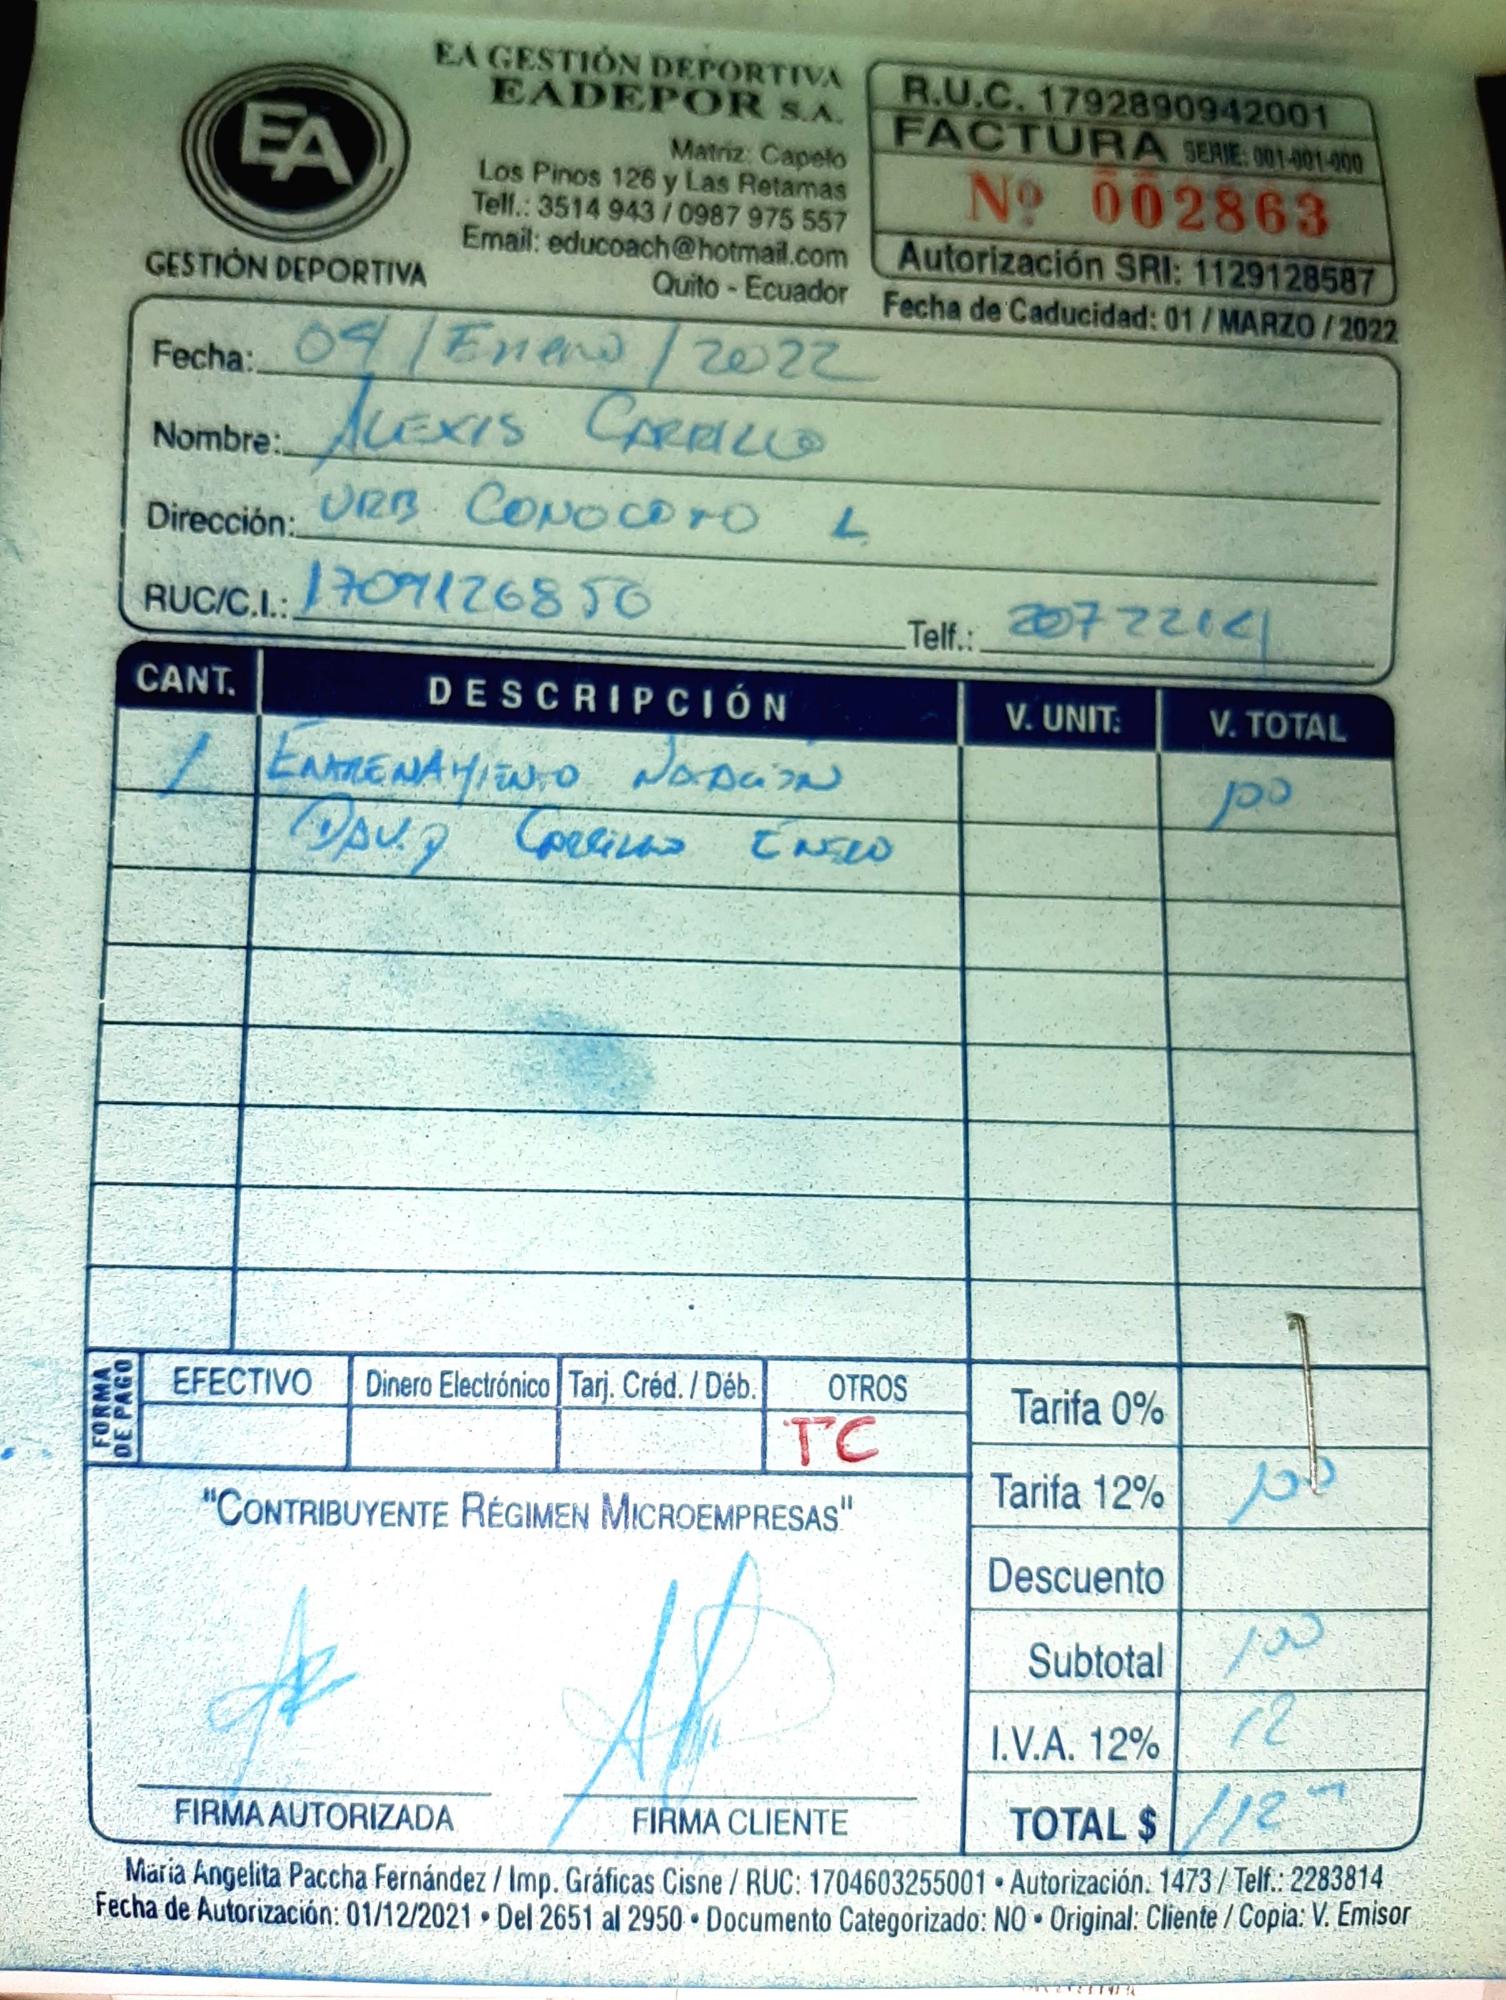 EA GESTIÓN DEPORTIVA
EADEPOR S.A.
EA
GESTIÓN DEPORTIVA
Matriz: Capelo
Los Pinos 126 y Las Retamas
Telf.: 3514 943 / 0987 975 557
Email: educoach@hotmail.com
Quito - Ecuador
R.U.C. 1792890942001
FACTURA SERIE: 001-001-000
Nº 002863
Autorización SRI: 1129128587
Fecha de Caducidad: 01 / MARZO / 2022
Fecha: 04 / Enero / 2022
Nombre: ALEXIS CARRILLO
Dirección: URB CONOCOTO L
RUC/C.I.: 1709126850 Telf.:
CANT. DESCRIPCIÓN V. UNIT: V. TOTAL
1 ENTRENAMIENTO NATACIÓN 100
DAVID CARRILLO ENERO
FORMA DE PAGO
EFECTIVO Dinero Electrónico Tarj. Créd. / Déb. OTROS
TC
Tarifa 0%
Tarifa 12% 100
Descuento
Subtotal 100
I.V.A. 12% 12
TOTAL $ 112
"CONTRIBUYENTE RÉGIMEN MICROEMPRESAS"
FIRMA AUTORIZADA FIRMA CLIENTE
María Angelita Paccha Fernández / Imp. Gráficas Cisne / RUC: 1704603255001 • Autorización. 1473 / Telf.: 2283814
Fecha de Autorización: 01/12/2021 • Del 2651 al 2950 • Documento Categorizado: NO • Original: Cliente / Copia: V. Emisor